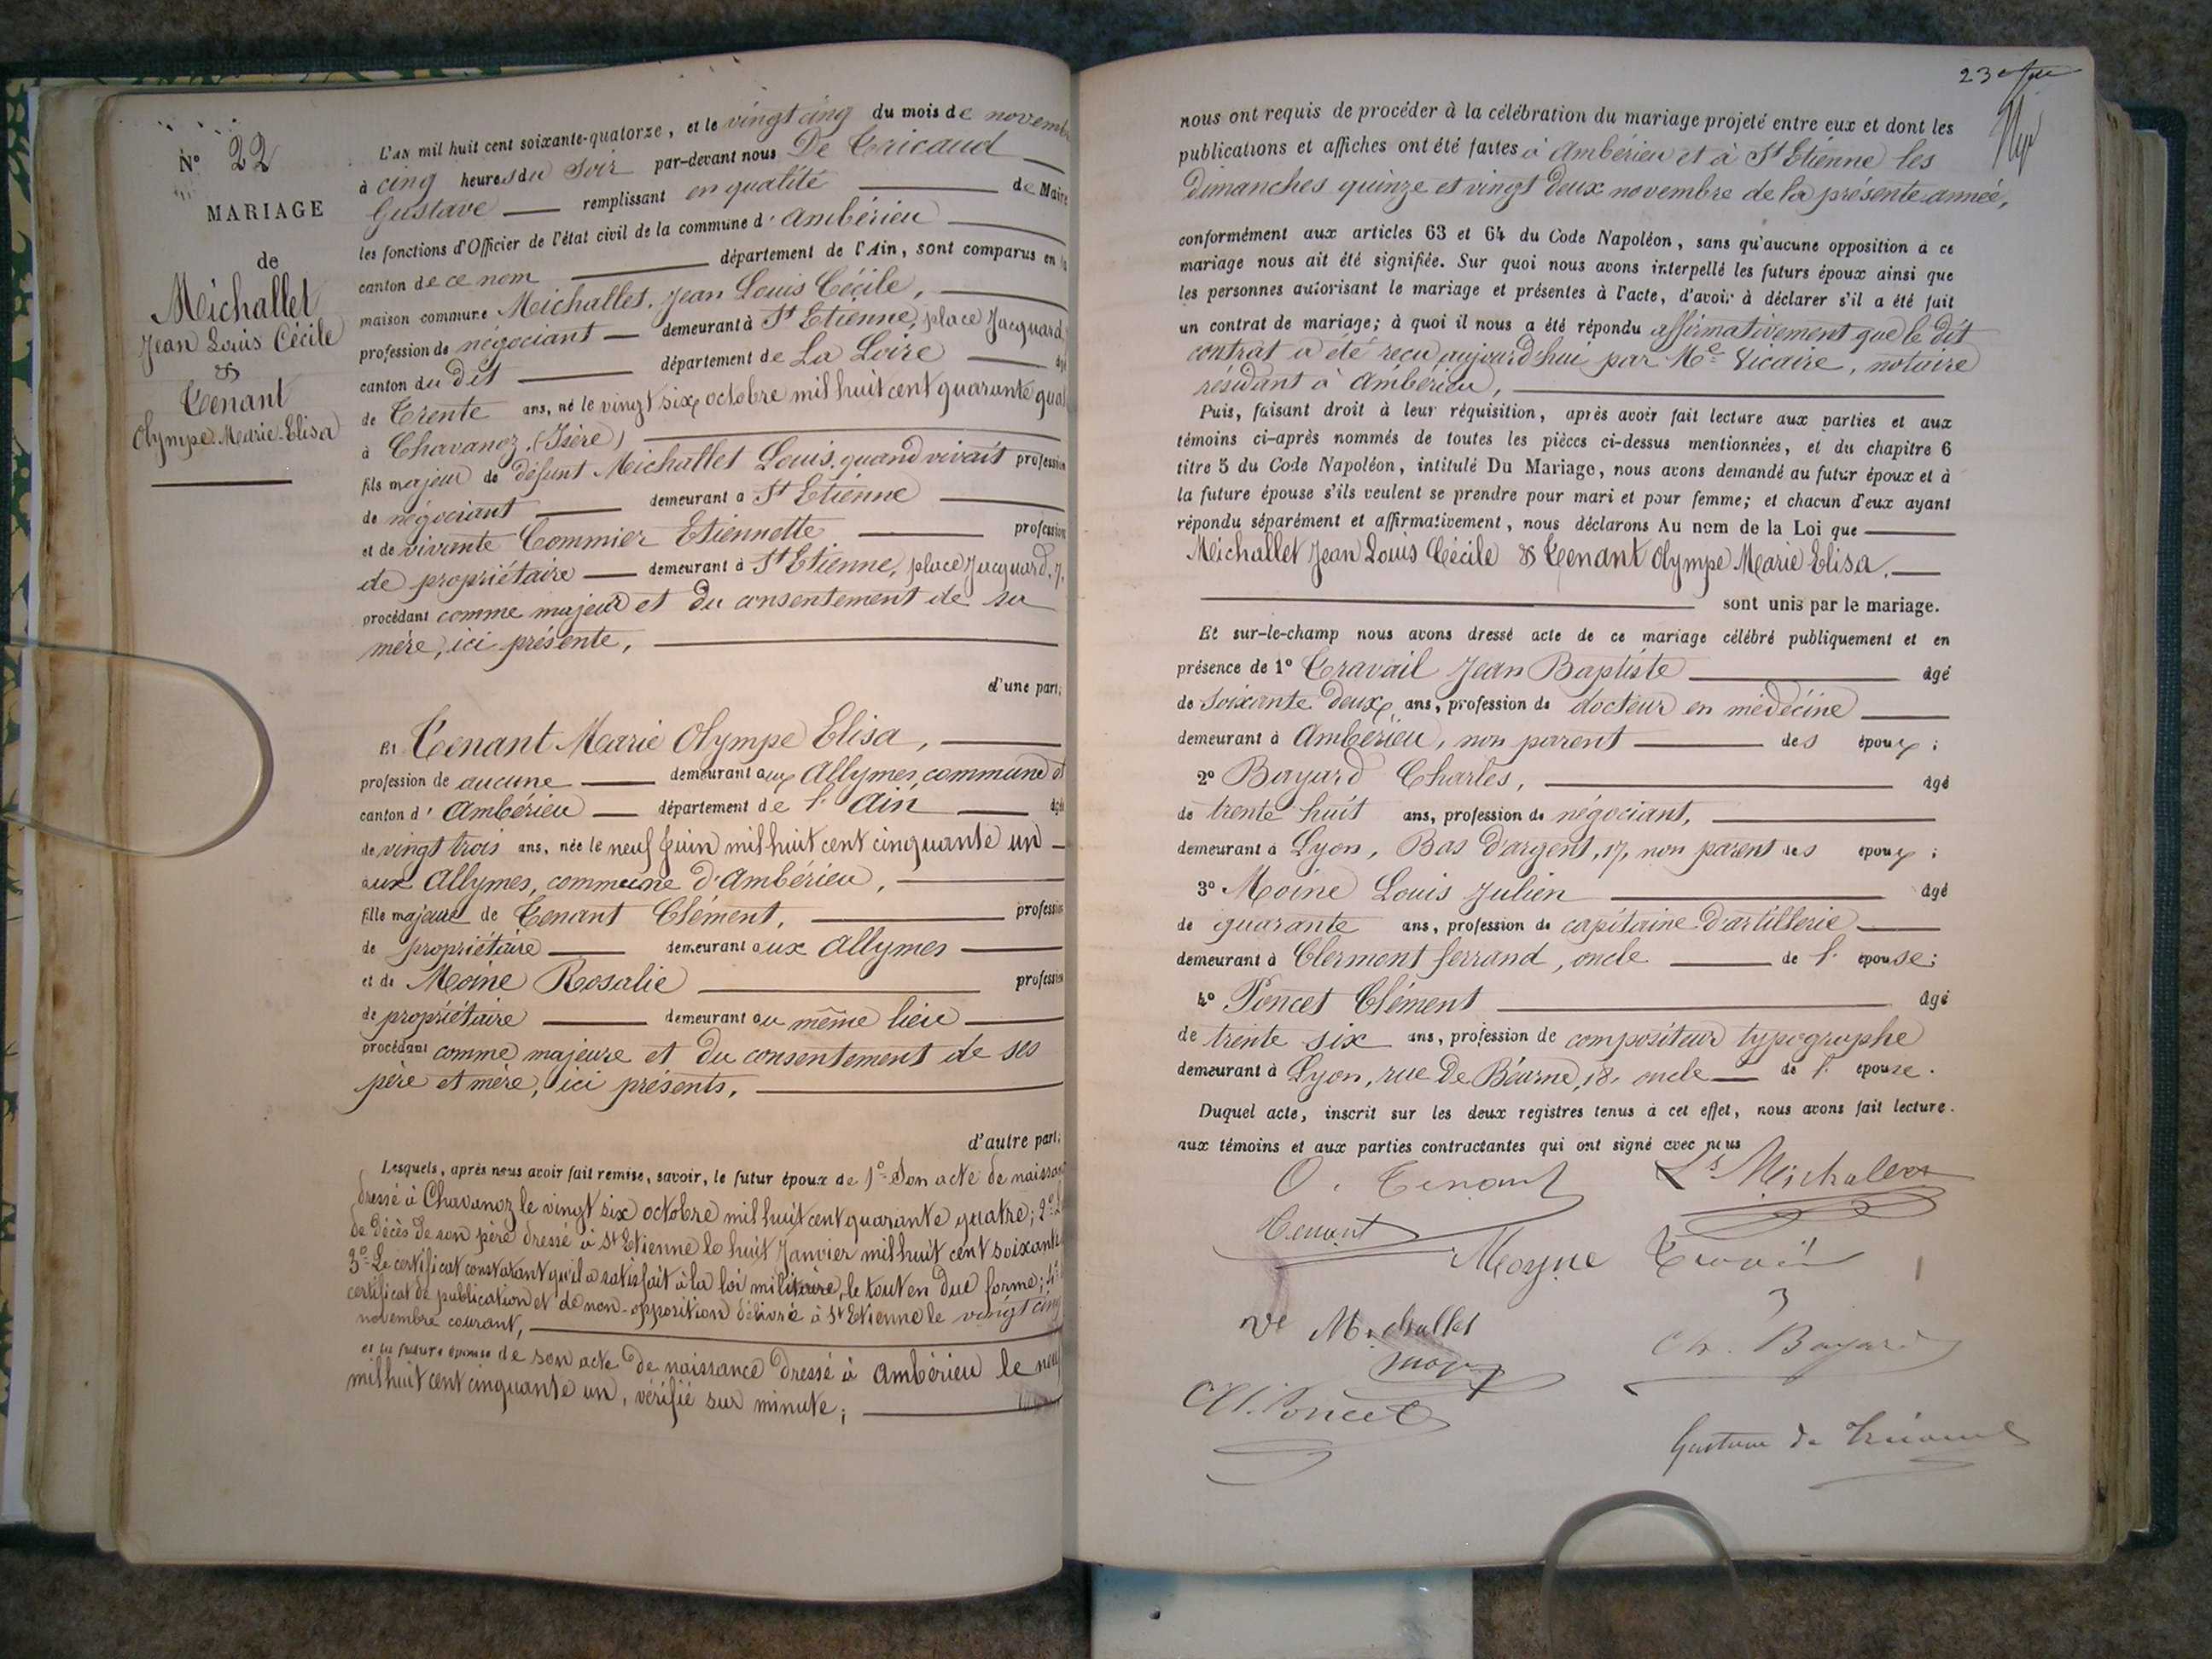 N° 22
MARIAGE
de
Michallet
Jean Louis Cécile
&
Tenant
Olympe Marie Elisa
L'AN mil huit cent soixante-quatorze, et le vingt cinq du mois de novemb
à cinq heures du soir par-devant nous De Tricaud
Gustave remplissant en qualité de Maire
les fonctions d'Officier de l'état civil de la commune d'Ambérieu
canton de ce nom département de l'Ain, sont comparus en la
maison commune Michallet, Jean Louis Cécile,
profession de négociant demeurant à St Etienne, place Jacquard,
canton du dit département de La Loire âgé
de Trente ans, né le vingt six octobre mil huit cent quarante quat
à Chavanoz, (Isère)
fils majeur de défunt Michallet Louis, quand vivait profession
de négociant demeurant à St Etienne
et de vivante Commier Etiennette profession
de propriétaire demeurant à St Etienne, place Jacquard, 7,
procédant comme majeur et du consentement de sa
mère, ici présente,
d'une part;
Et Tenant Marie Olympe Elisa,
profession de aucune demeurant aux Allymes, commune et
canton d'Ambérieu département de l'Ain âgée
de vingt trois ans, née le neuf juin mil huit cent cinquante un
aux Allymes, commune d'Ambérieu,
fille majeure de Tenant Clément, profession
de propriétaire demeurant aux Allymes
et de Moine Rosalie profession
de propriétaire demeurant au même lieu
procédant comme majeure et du consentement de ses
père et mère, ici présents,
d'autre part;
Lesquels, après nous avoir fait remise, savoir, le futur époux de 1° Son acte de naissan
dressé à Chavanoz le vingt six octobre mil huit cent quarante quatre; 2°
de décès de son père dressé à St Etienne le huit Janvier mil huit cent soixante
3° Le certificat constatant qu'il a satisfait à la loi militaire, le tout en due forme; 4°
certificat de publication et de non-opposition délivré à St Etienne le vingt cinq
novembre courant,
et la future épouse de son acte de naissance dressé à Ambérieu le neuf
mil huit cent cinquante un, vérifié sur minute;
23
nous ont requis de procéder à la célébration du mariage projeté entre eux et dont les
publications et affiches ont été faites à Ambérieu et à St Etienne les
dimanches quinze et vingt deux novembre de la présente année,
conformément aux articles 63 et 64 du Code Napoléon, sans qu'aucune opposition à ce
mariage nous ait été signifiée. Sur quoi nous avons interpellé les futurs époux ainsi que
les personnes autorisant le mariage et présentes à l'acte, d'avoir à déclarer s'il a été fait
un contrat de mariage; à quoi il nous a été répondu affirmativement que le dit
contrat a été reçu aujourd'hui par Me Vicaire, notaire
résidant à Ambérieu,
Puis, faisant droit à leur réquisition, après avoir fait lecture aux parties et aux
témoins ci-après nommés de toutes les pièces ci-dessus mentionnées, et du chapitre 6
titre 5 du Code Napoléon, intitulé Du Mariage, nous avons demandé au futur époux et à
la future épouse s'ils veulent se prendre pour mari et pour femme; et chacun d'eux ayant
répondu séparément et affirmativement, nous déclarons Au nom de la Loi que
Michallet Jean Louis Cécile & Tenant Olympe Marie Elisa,
sont unis par le mariage.
Et sur-le-champ nous avons dressé acte de ce mariage célébré publiquement et en
présence de 1° Travail Jean Baptiste âgé
de soixante deux ans, profession de docteur en médécine
demeurant à Ambérieu, non parent des époux;
2° Bayard Charles, âgé
de trente huit ans, profession de négociant,
demeurant à Lyon, Bas d'argent, 17, non parent des époux;
3° Moine Louis Julien âgé
de quarante ans, profession de capitaine d'artillerie
demeurant à Clermont ferrand, oncle de l'épouse;
4° Poncet Clément âgé
de trente six ans, profession de compositeur typographe
demeurant à Lyon, rue De Béarne, 18, oncle de l'épouse.
Duquel acte, inscrit sur les deux registres tenus à cet effet, nous avons fait lecture.
aux témoins et aux parties contractantes qui ont signé avec nous
O. Tenant Ls Michallet
Tenant
Moyne Travail
Ve Michallet
Ch. Bayard
Cl. Poncet
Gustave de Tricaud